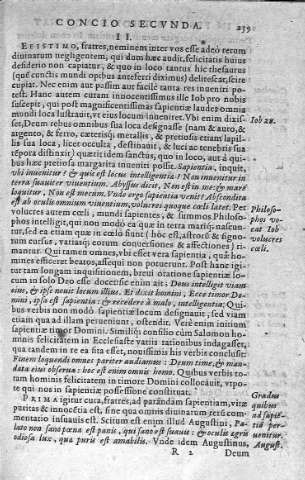 CONCIO SECVNDA. 259
II.
EXISTIMO, fratres, neminem inter vos esse adeò rerum
diuinarum negligentem, qui dum hæc audit, felicitatis huius
desiderio non capiatur, & quo in loco tantus hic thesaurus
(quem cunctis mundi opibus anteferri diximus) delitescat, scire
cupiat. Nec enim aut passim aut facilè tanta res inueniri po-
test. Hanc autem curam innocentissimus ille Iob pro nobis
suscepit, qui post magnificentissimas sapientiæ laudes omnia
mundi loca lustrauit, vt eius locum inueniret. Vbi enim
Iob 28.
set, Deum rebus omnibus sua loca designasse (nam & auro, &
argento, & ferro, cæterisq́; metallis, & pretiosis etiam lapil-
lis sua loca, licet occulta, destinauit, & luci ac tenebris sua
tempora distinxit) quærit idem sanctus, quo in loco, aut à qui-
bus hæc pretiosa margarita inueniri possit. Sapientia, inquit,
vbi inuenitur? & quis est locus intelligentiæ? Non inuenitur in
terra suauiter viuentium. Abyssus dicit, Non est in me: & mare
loquitur, Non est mecum. Vnde ergo sapientia venit? Abscondita
est ab oculis omnium viuentium, volucres quoque cœli latet. Per
Philoso-
phos vo-
cat Iob
volucres
cœli.
volucres autem cœli, mundi sapientes, & summos Philoso-
phos intelligit, qui non modò ea quæ in terra mariq́; nascun-
tur, sed ea etiam quæ in cœlo sunt (hoc est, altros & signo-
rum cursus, variasq́; eorum conuersiones & affectiones) ri-
mantur. Qui tamen omnes, vbi esset vera sapientia, quæ ho-
mines efficeret beatos, assequi non potuerunt. Post hanc igi-
tur tam longam inquisitionem, breui oratione sapientiæ lo-
cum in solo Deo esse docuisse enim ait: Deus intelligit viam
eius, & ipse nouit locum illius. Et dixit homini, Ecce timor Do-
mini, ipsa est sapientia: & recedere à malo, intelligentia. Qui-
bus verbis non modò sapientiæ locum designauit, sed viam
etiam qua ad illam perueniunt, ostendit. Verè enim initium
sapientiæ timor Domini. Simili consilio cùm Salomon ho-
mnis felicitatem in Ecclesiaste variis rationibus indagasset,
qua tandem in re ea sita esset, nouissimis his verbis conclusit:
Finem loquendi omnes pariter audiamus: Deum time, & man-
data eius obserua: hoc est enim omnis homo. Quibus verbis to-
tam hominis felicitatem in timore Domini collocauit, vtpo-
te qui non in sapientiæ possessione constituat.
Gradus
quibus
ad sapiē-
tiā per-
uenitur.
August.
PRIMA igitur cura, fratres, ad parandam sapientiam, vitæ
puritas & innocētia est, sine qua omnis diuinarum rerū com-
mentatio insuauis est. Scitum est enim illud Augustini, Pa-
lato non sano pœna est panis, qui sano est suauis: & oculis ægris
odiosa lux, quæ puris est amabilis. Vnde idem Augustinus,
R 2 Deum